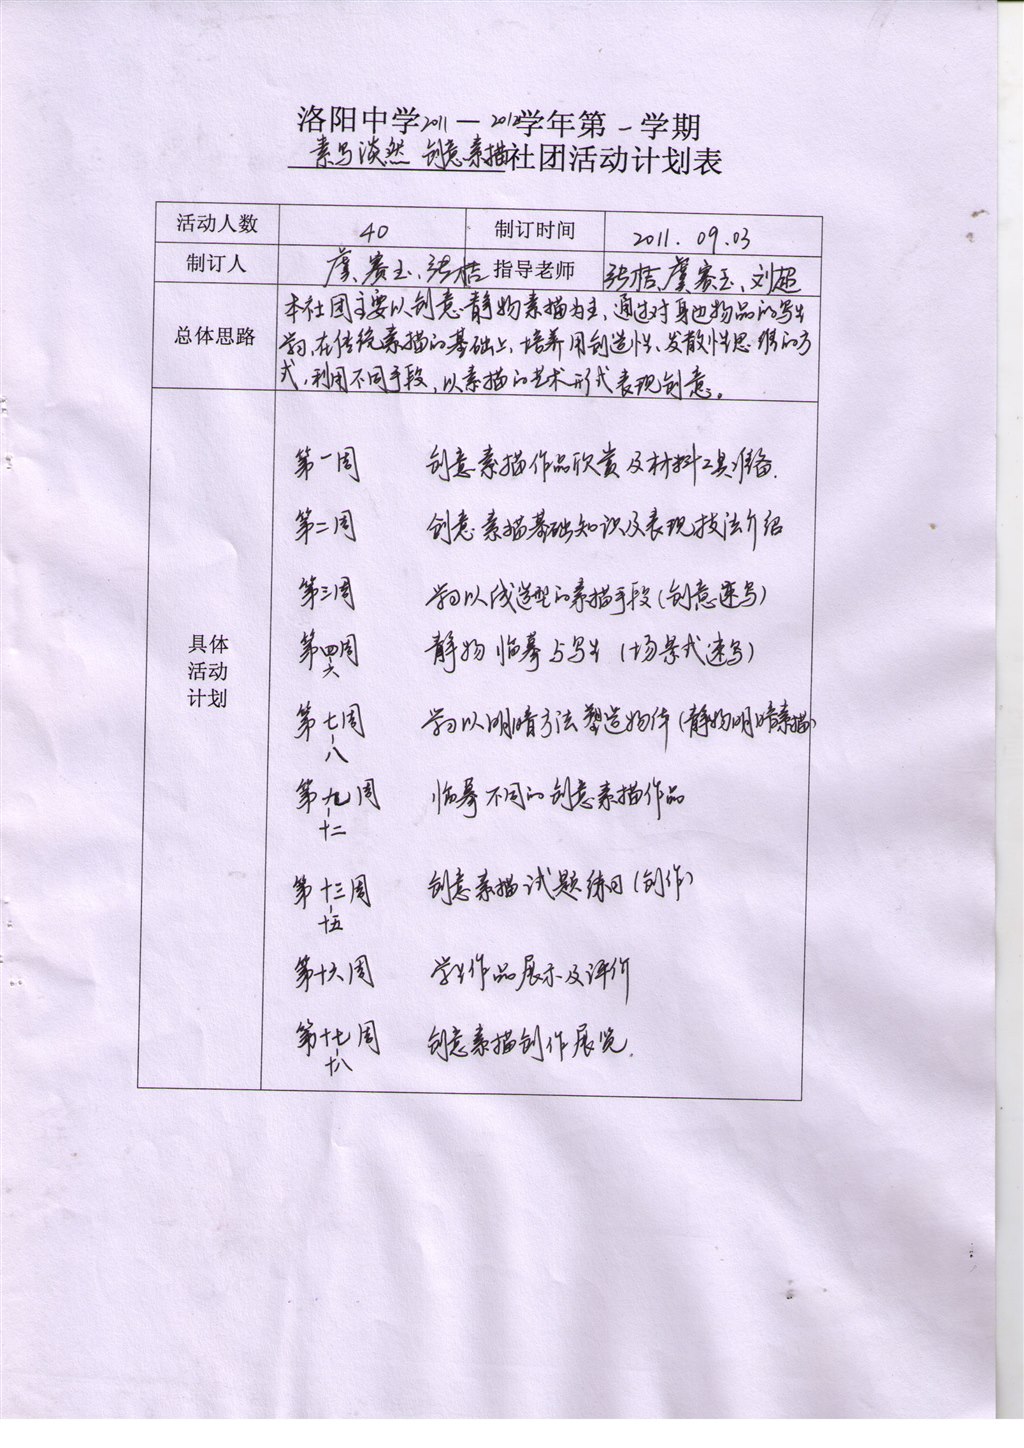 洛阳中学2011—2012学年第一学期
素写淡然 创意素描社团活动计划表
活动人数 40 制订时间 2011.09.03
制订人 虞赛玉、张桔 指导老师 张桔、虞赛玉、刘超
总体思路
本社团主要以创意静物素描为主,通过对身边物品的写生
学习,在传统素描的基础上,培养用创造性、发散性思维的方
式,利用不同手段,以素描的艺术形式表现创意。
具体
活动
计划
第一周 创意素描作品欣赏及材料工具准备.
第二周 创意素描基础知识及表现技法介绍
第三周 学习以线造型的素描手段(创意速写)
第四-六周 静物临摹与写生(场景式速写)
第七-八周 学习以明暗方法塑造物体(静物明暗素描)
第九-十二周 临摹不同的创意素描作品
第十三-十五周 创意素描试题练习(创作)
第十六周 学生作品展示及评价
第十七-十八周 创意素描创作展览.